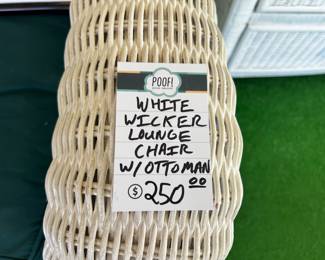 POOF!
WHITE
WICKER
LOUNGE
CHAIR
W/OTTOMAN
$250.00